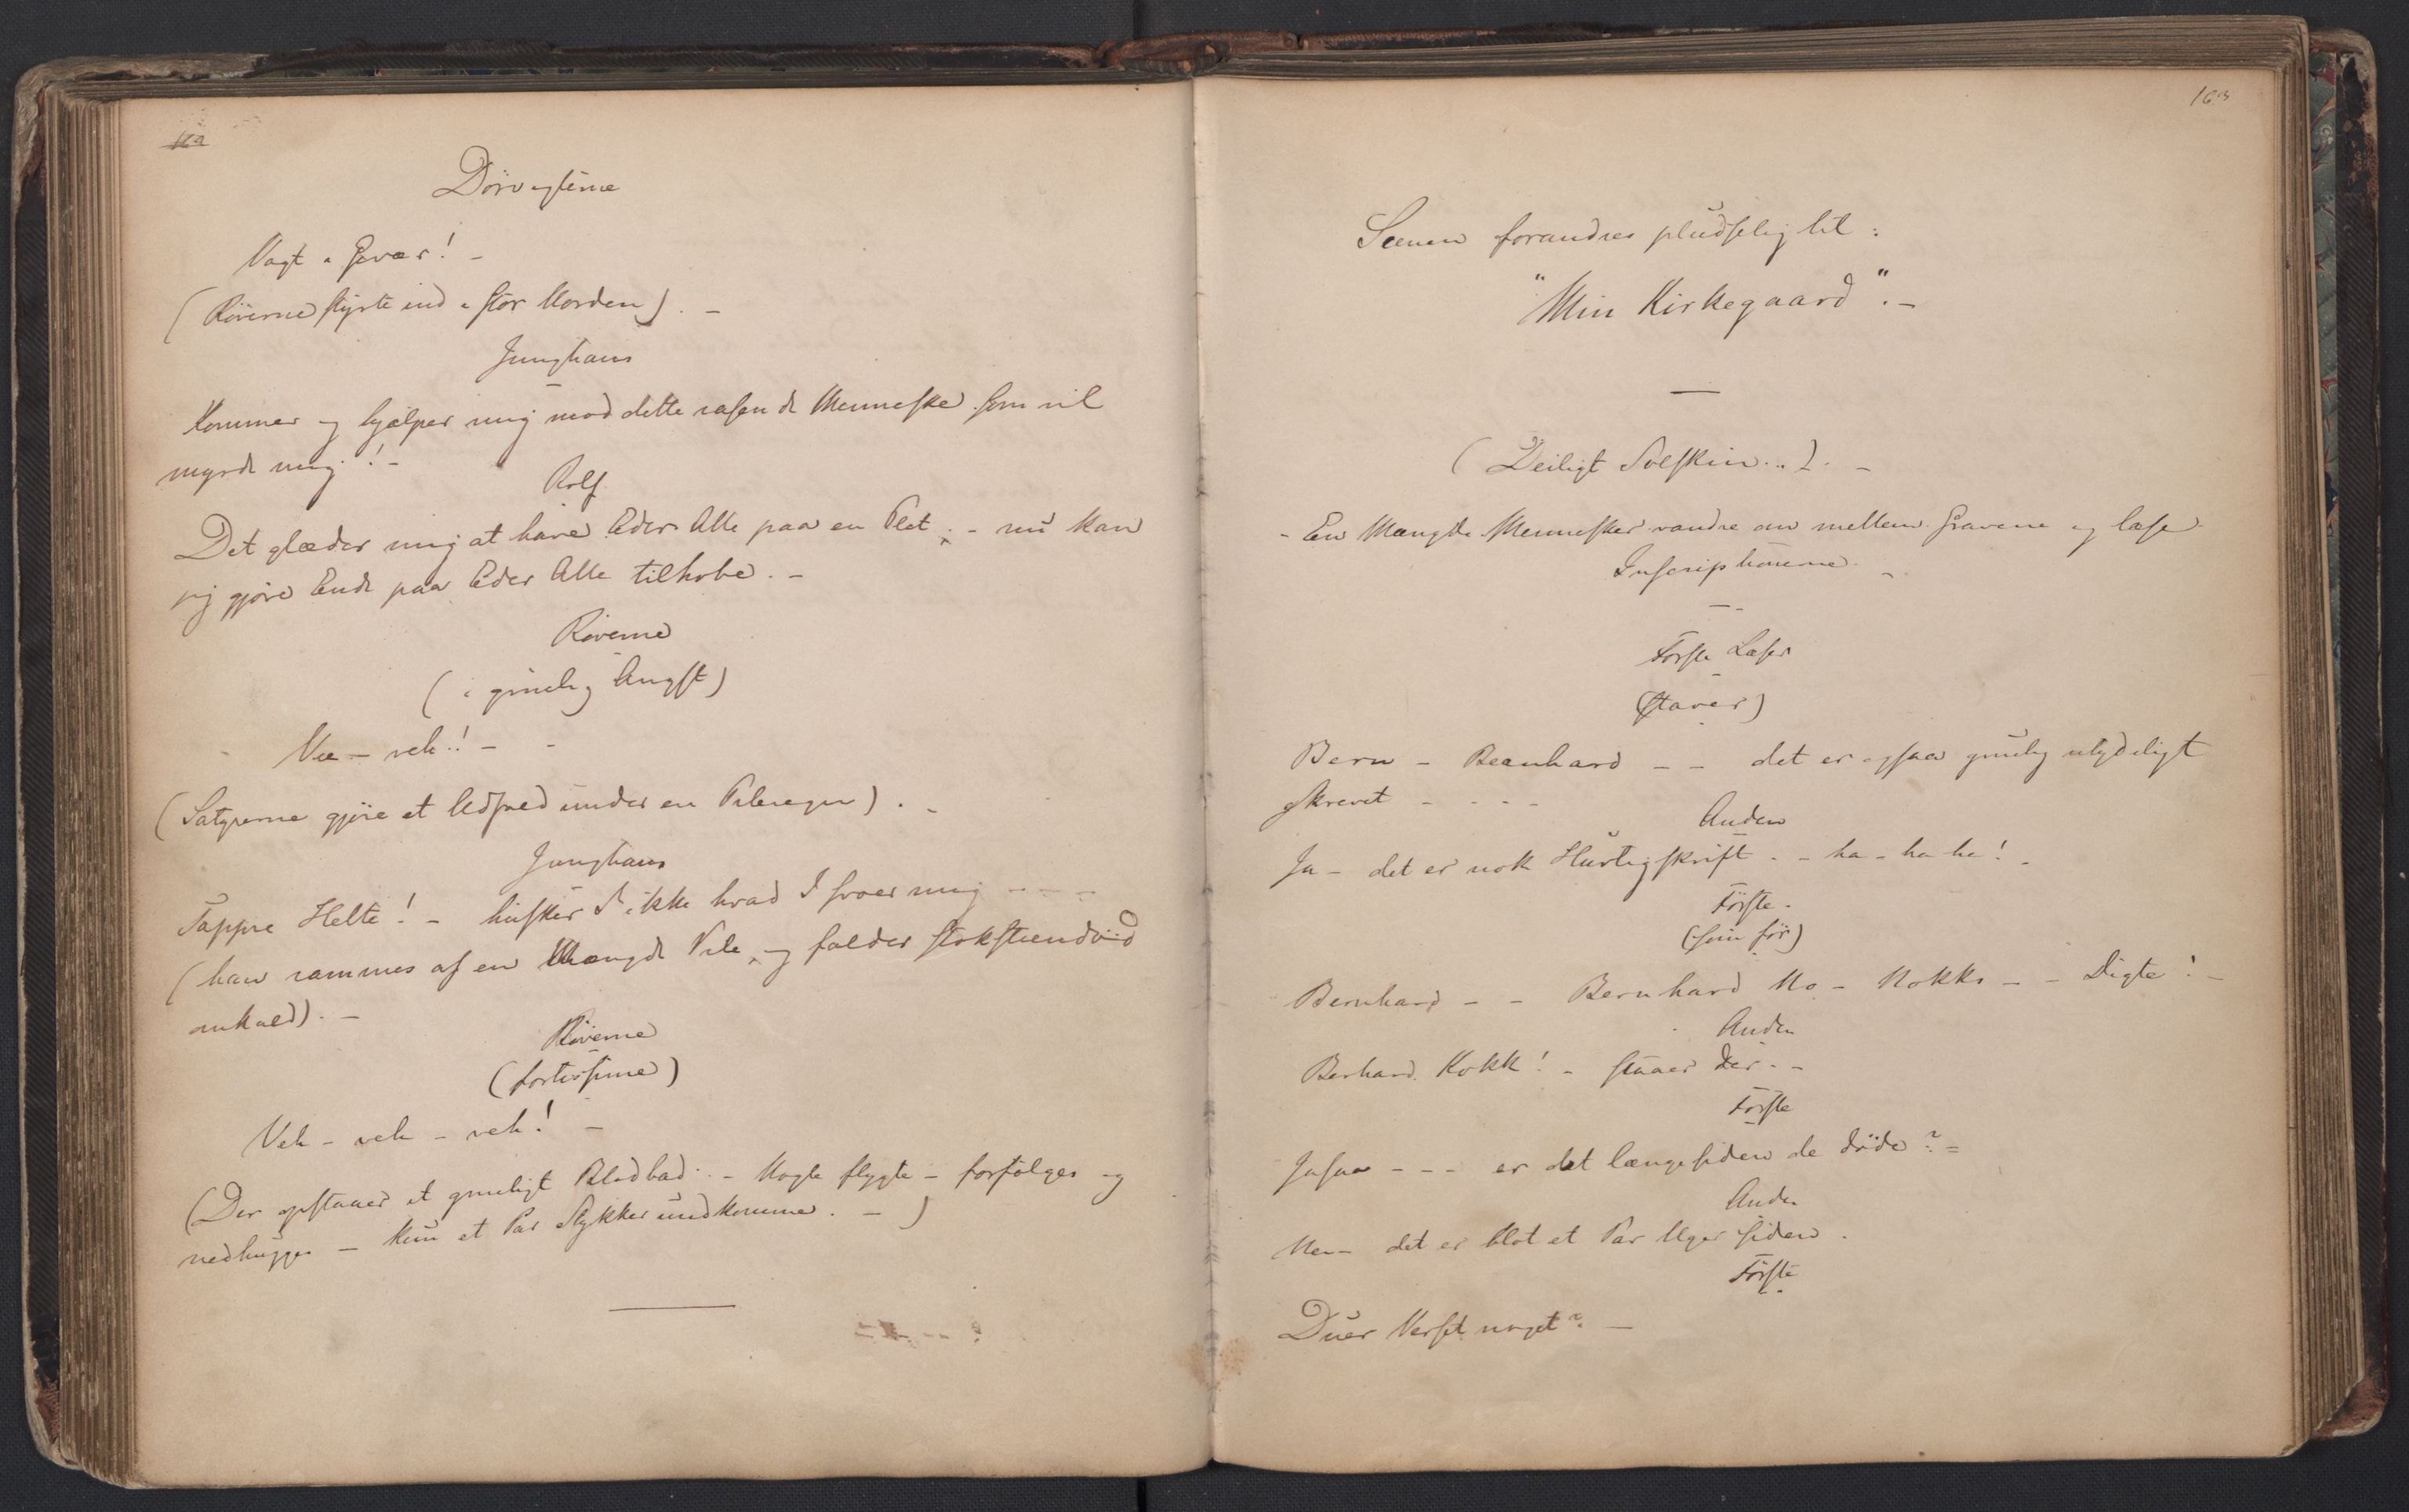 Dørvogterne
Vagt i Gevær! –
(Røverne styrte ind i stor Uorden). –
Junghans
Kommer og hjælper mig mod dette rasende Menneske som vil
myrde mig! –
Rolf
Det glæder mig at have Eder Alle paa en Plet; – nu kan
jeg gjøre Ende paa Eder Alle tilhobe. –
Røverne
(i gruelig Angst)
Vee – veh! – –
(Satyrerne gjøre et Udfald under en Pileregn). –
Junghans
Tappre Helte! – husker I ikke hvad I svoer mig – – –
(han rammes af en Mængde Pile, og falder stokstendød
omkuld). –
Røverne
(fortissime)
Veh – veh – veh! –
(Der opstaaer et grueligt Blodbad. – Nogle flygte – forfølges og
nedhugges – kun et Par Stykker undkomme. –)
163
Scenen forandres pludselig til:
"Min Kirkegaard". –
(Deiligt Solskin..). –
– En Mængde Mennesker vandre om mellem Gravene og læse
Inscriptionerne. –
Første Læser
(staver)
Bern – Bernhard – – det er ogsaa gruelig utydeligt
skrevet – – – –
Anden
Ja – det er nok Hurtigskrift. – ha – ha ha! –
Første.
(som før)
Bernhard – – Bernhard Ko – Kokks – – Digte! –
Anden
Berhard Kokk! – staaer der. –
Første
Jasaa – – – er det længesiden de døde? –
Anden
Nei – det er blot et Par Uger siden.
Første
Duer Verset noget? –